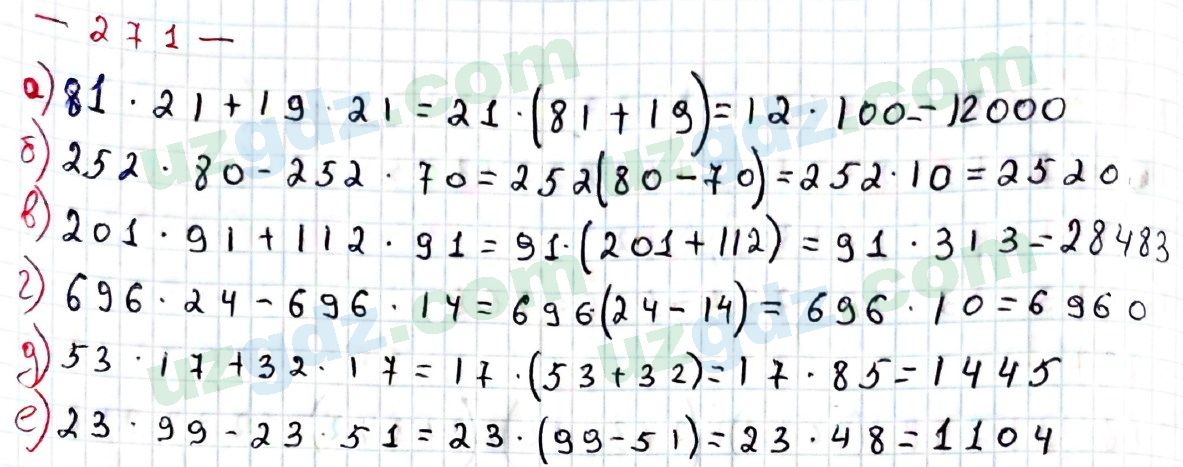 - 271 -
а) 81 · 21 + 19 · 21 = 21 · (81 + 19) = 12 · 100 = 12000
б) 252 · 80 - 252 · 70 = 252(80 - 70) = 252 · 10 = 2520
в) 201 · 91 + 112 · 91 = 91 · (201 + 112) = 91 · 313 = 28483
г) 696 · 24 - 696 · 14 = 696 · (24 - 14) = 696 · 10 = 6960
д) 53 · 17 + 32 · 17 = 17 · (53 + 32) = 17 · 85 = 1445
е) 23 · 99 - 23 · 51 = 23 · (99 - 51) = 23 · 48 = 1104
uzgdz.com
uzgdz.com
uzgdz.com
uzgdz.com